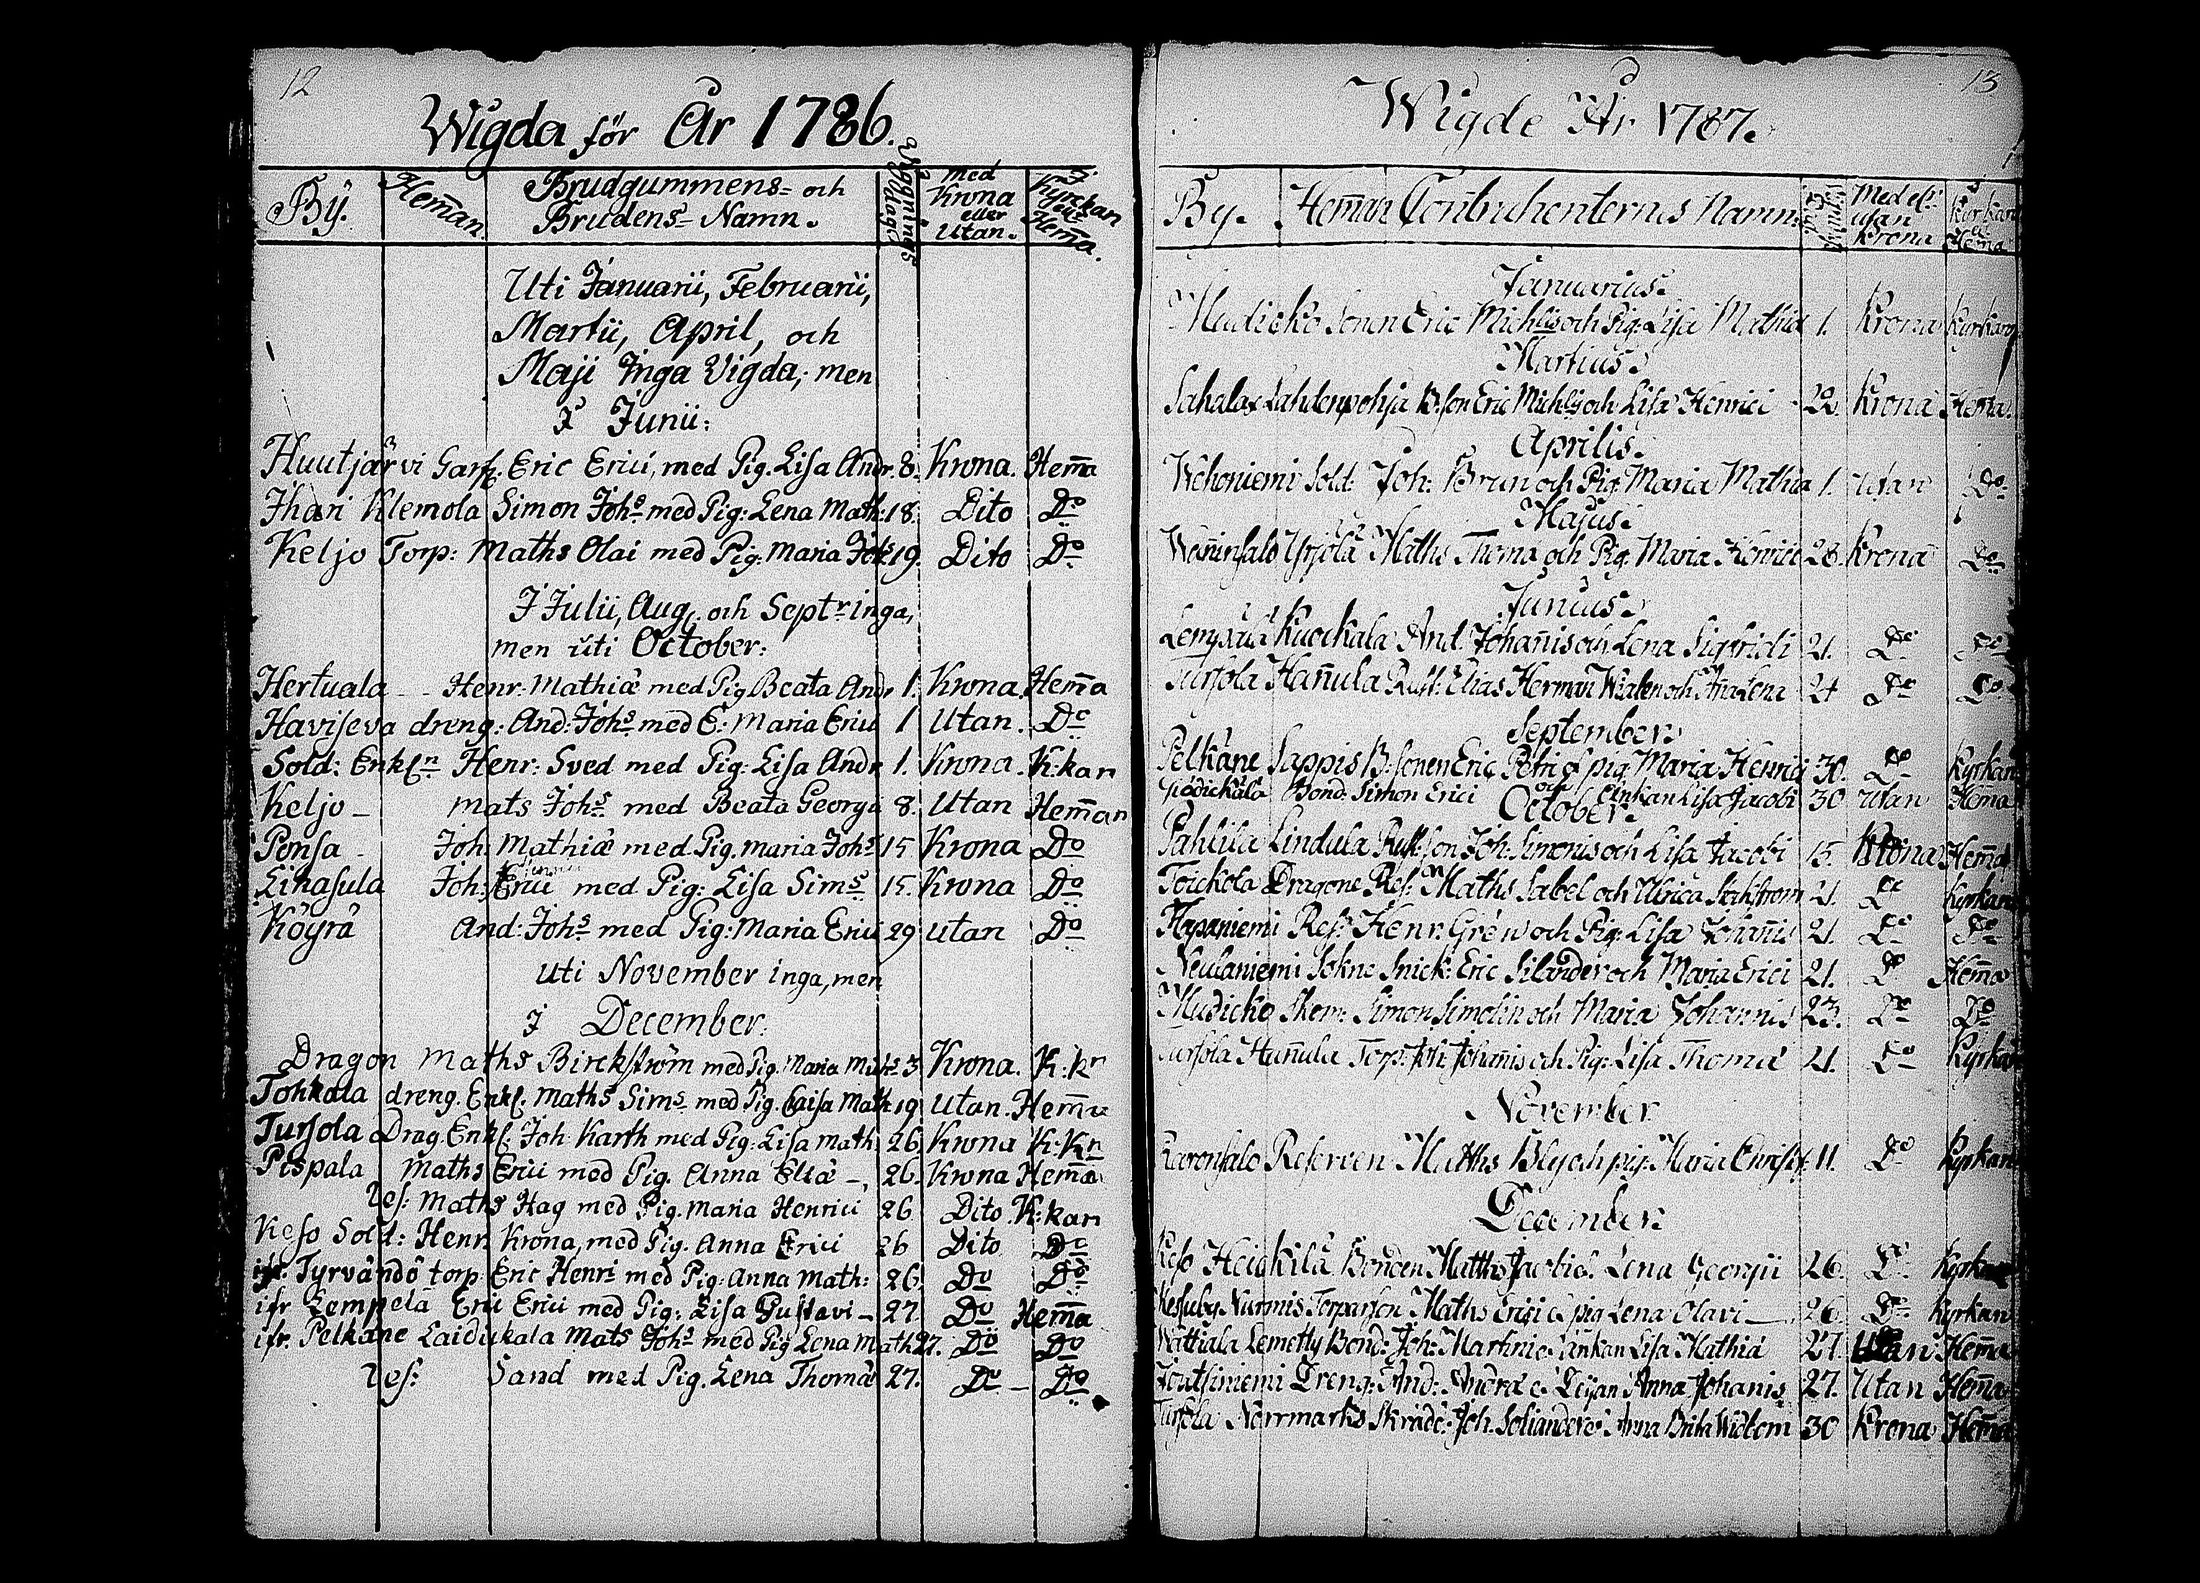 12
Wigda för År 1786.
By. Hem̄an. Brudgummens- och Brudens- Namn. Wignings Dag. med Krona eller Utan. I Kyrckan eller Hem̄a.
Uti Januarii, Februarii,
Martii, April, och
Maji Inga Vigda, men
I Junii:
Huutjärvi Eric Erici, med Pig. Lisa Andr. 8. Krona. Hem̄a
Ihari Klemola Simon Johs med Pig: Lena Math: 18. Dito Do
Keljo Torp: Maths Olai med Pig: Maria Johs 19. Dito Do
I Julii, Aug. och Septr inga,
men uti October:
Hertuala Henr: Mathiæ med Pig Beata Andr 1. Krona. Hem̄a
Haviseva dreng: And: Johs med E: Maria Erici 1 Utan. Do
Sold: Enkln Henr: Sved med Pig: Lisa Andr 1. Krona. K:kan
Keljo - Mats Johs med Beata Georgii 8. Utan Hem̄an
Ponsa - Joh Mathiæ med Pig. Maria Johs 15 Krona Do
Linasula Joh: Erici med Pig: Lisa Sims 15. Krona Do
Köyrä And: Johs med Pig: Maria Erici 29 utan Do
Uti November inga, men
I December.
Dragon Maths Birckström med Pig. Maria Maths 3 Krona. K:kn
Tohkala dreng. Enkl. Maths Sims med Pig. Caisa Math 19 Utan. Hem̄a
Tursola Drag. Enkl: Joh Karth med Pig: Lisa Math 26. Krona K:Kn
Pispala Maths Erici med Pig. Anna Eliæ - 26. Krona Hem̄a
Res: Maths Hag med Pig. Maria Henrici 26 Dito K:kan
Keso Sold: Henr Krona, med Pig. Anna Erici 26 Dito Do
ifr. Tyrvändö torp Eric Henri med Pig: Anna Math: 26. Do Do
ifr Lempelä Eric Erici med Pig: Lisa Gustavi - 27. Do Hem̄a
ifr. Pelkäne Laidickala Mats Johs med Pig Lena Math 27. Do Do
Res: Sand med Pig. Lena Thomæ 27. Do - Do
13
Wigde År 1787.
By. Hem̄an Contrahenternes Namn. Med el: utan Krona I Kyrkan el: Hem̄a
Januarius.
Mudicko Sonen Eric Michls och Pig: Lisa Mathiæ 1. Krona Kyrkan
Martius.
Sahalax Lahdenpohja B:son Eric Michls och Lisa Henrici 22. Krona Hem̄a.
Aprilis.
Wehoniemi Sold: Joh: Brun och Pig: Maria Mathiæ 1. Utan Do
Majus.
Maths Thomæ och Pig: Maria Henrici 28. Krona Do
Junius.
Kuockala And. Johan̄is och Lena Sigfridi 21. Do Do
Tursola Han̄ula Rust: Elias Herman Walen och An̄a Lena 24 Do Do
September.
Pelkäne Sappis B: sonen Eric Petri & pig: Maria Henrici 30. Do Kyrkan
Bond: Simon Erici och Enkan Lisa Jacobi 30 Utan Hem̄a
October.
Pahlila Lindula Rust: son Joh: Simonis och Lisa Jacobi 15. Krona Hem̄a
Toickola Dragone Res: Maths Sabel och Ulrica 21. Do Kyrkan
Haponiemi Res: Henr: Grén och Pig: Lisa Johan̄is 21. Do Do
Neulaniemi Sokne Snick: Eric Silander och Maria Erici 21. Do Hem̄a
Mudicko Skom: Simon Simelin och Maria Johannis 23. Do Do
Tursola Han̄ula Torp: Joh: Johan̄is och Pig: Lisa Thomæ 21. Do Kyrkan
November
Reserven Maths Bly och pig: Maria 11. Do Kyrkan
December.
Keso Heickilä Bonden Matths Jacobi & Lena Georgii 26. Do Kyrkan
Nurmis Torparson Maths Erici & pig Lena Olavi 26. Do Kyrkan
Wättiala Lemetty Bond: Joh: Martini & änkan Lisa Mathiæ 27. Utan Hem̄a
Joutsiniemi Dreng: And: Andræ & Anna Johanis 27. Utan Hem̄a
Tursola Norrmarks Joh. Solander & Anna Brita 30 Krona Hem̄a